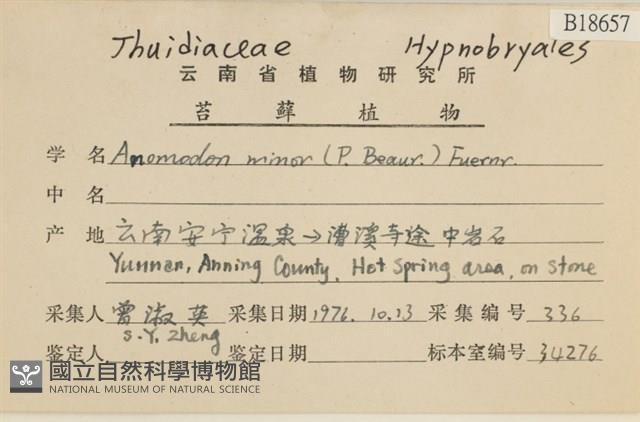 B18657
Thuidiaceae Hypnobryales
云南省植物研究所
苔藓植物
学名 Anomodon minor (P. Beauv.) Fuernr.
中名
产地 云南安宁温泉→漕溪寺途中岩石
Yunnan, Anning County, Hot Spring area, on stone
采集人 曾淑英 采集日期 1976. 10. 13 采集编号 336
S.Y. Zheng
鉴定人 鉴定日期 标本室编号 34276
國立自然科學博物館
NATIONAL MUSEUM OF NATURAL SCIENCE